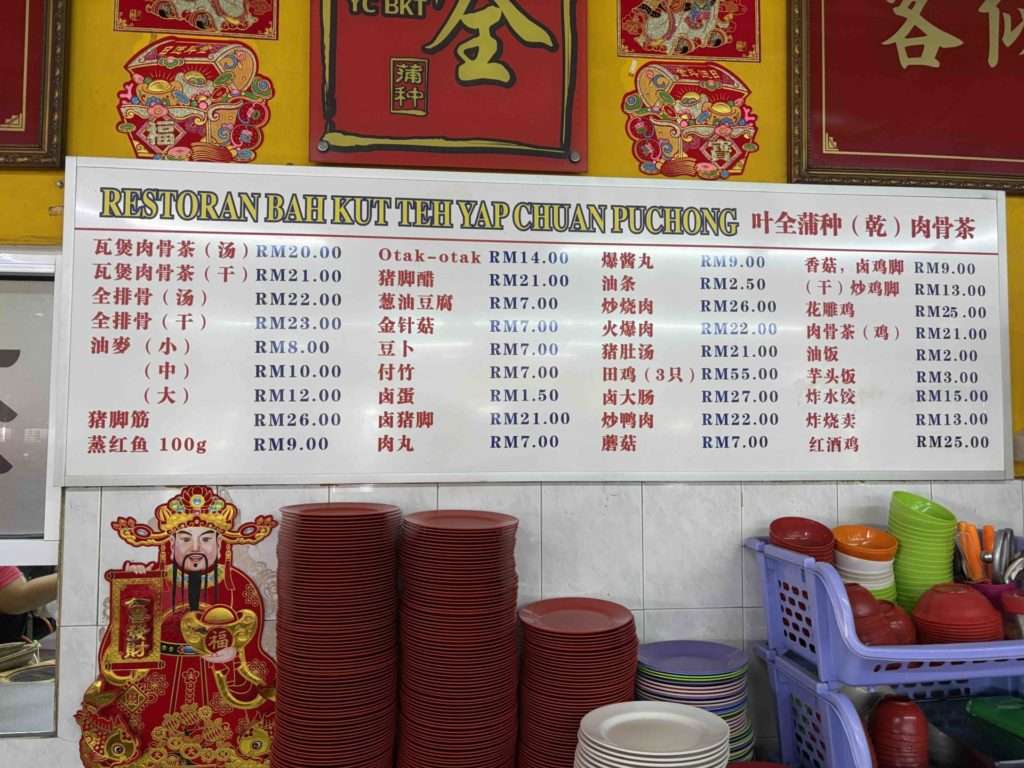 YC BKT
全
蒲种
客
福
寶
RESTORAN BAH KUT TEH YAP CHUAN PUCHONG 叶全蒲种（乾）肉骨茶
瓦煲肉骨茶（汤） RM20.00
瓦煲肉骨茶（干） RM21.00
全排骨（汤） RM22.00
全排骨（干） RM23.00
油麥（小） RM8.00
（中） RM10.00
（大） RM12.00
猪脚筋 RM26.00
蒸红鱼 100g RM9.00
Otak-otak RM14.00
猪脚醋 RM21.00
葱油豆腐 RM7.00
金针菇 RM7.00
豆卜 RM7.00
付竹 RM7.00
卤蛋 RM1.50
卤猪脚 RM21.00
肉丸 RM7.00
爆酱丸 RM9.00
油条 RM2.50
炒烧肉 RM26.00
火爆肉 RM22.00
猪肚汤 RM21.00
田鸡（3只） RM55.00
卤大肠 RM27.00
炒鸭肉 RM22.00
蘑菇 RM7.00
香菇，卤鸡脚 RM9.00
（干）炒鸡脚 RM13.00
花雕鸡 RM25.00
肉骨茶（鸡） RM21.00
油饭 RM2.00
芋头饭 RM3.00
炸水饺 RM15.00
炸烧卖 RM13.00
红酒鸡 RM25.00
福